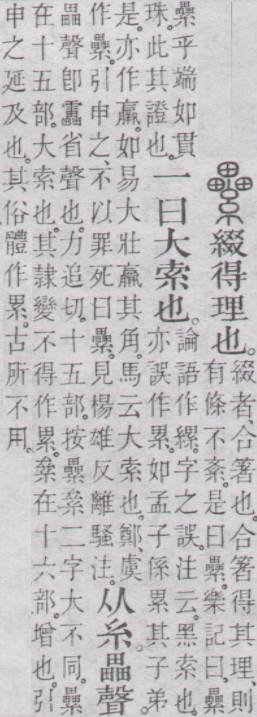 纍
綴得理也。
綴者、合箸也。合箸得其理、則
有條不紊。是曰纍。樂記曰。纍
纍乎端如貫
珠。此其證也。
一曰大索也。
論語作縲。字之誤。注云。黑索也。
亦誤作累。如孟子係累其子弟
是。亦作羸。如易大壯羸其角。馬云大索也。鄭虞
作纍。引申之、不以罪死曰纍。見楊雄反離騷注。
从糸畾聲。
畾聲卽靁省聲也。力追切。十五部。按纍絫二字大不同。纍
在十五部。大索也。其隸變不得作累。絫在十六部。增也。引
申之延及也。其俗體作累。古所不用。